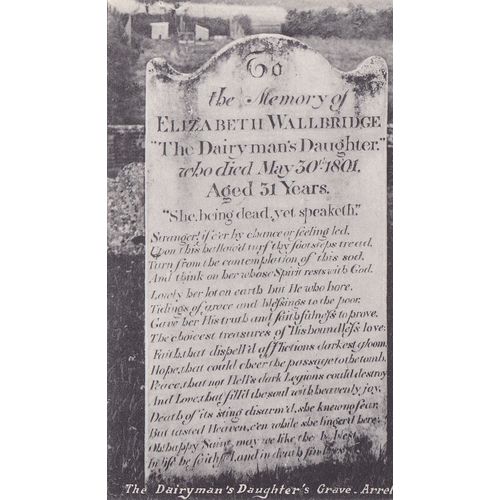 To
the Memory of
ELIZABETH WALLBRIDGE
"The Dairyman's Daughter."
who died May 30th 1801,
Aged 31 Years.
"She, being dead, yet speaketh."
Stranger! if e'er by chance or feeling led,
Upon this hallow'd turf thy footsteps tread,
Turn from the contemplation of this sod,
And think on her whose Spirit rests with God.
Lowly her lot on earth but He who bore,
Tidings of grace and blessings to the poor,
Gave her His truth and faithfulness to prove,
The choicest treasures of His boundless love:
Faith, that dispell'd affliction's darkest gloom,
Hope, that could cheer the passage to the tomb,
Peace, that not Hell's dark Legions could destroy
And Love, that fill'd the soul with heavenly joy,
Death of its sting disarm'd, she knew no fear,
But tasted Heaven, e'en while she linger'd here:
Oh! happy Saint, may we like thee be blest,
In life be faithful, and in death find rest
The Dairyman's Daughter's Grave. Arret